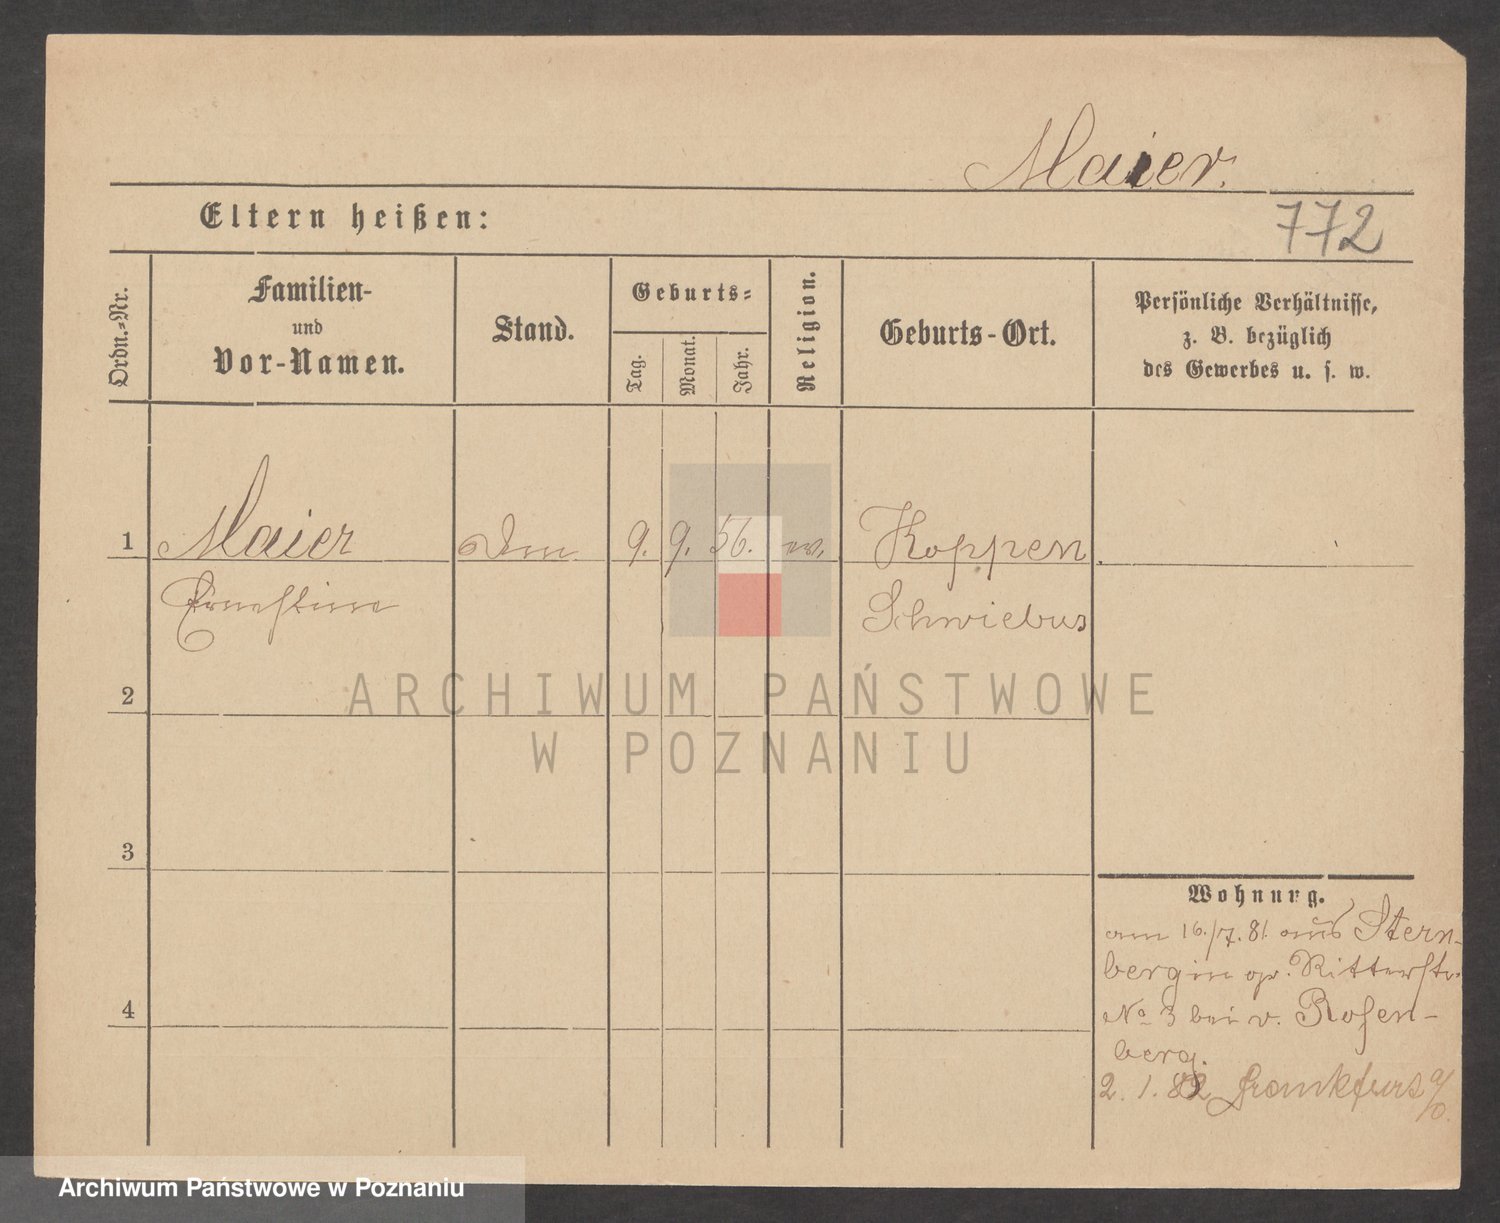 Maier.
772
Eltern heißen:
Ordn.-Nr.
Familien-
und
Vor-Namen.
Stand.
Geburts-
Tag.
Monat.
Jahr.
Religion.
Geburts-Ort.
Persönliche Verhältnisse,
z. B. bezüglich
des Gewerbes u. s. w.
1 Maier 9. 9. 56. ev. Koppen
Ernestine Schwiebus
2
3
4
Wohnung.
am 16./7. 81. aus Stern-
berg in Ritterstr.
No 3 bei v. Rosen-
berg.
2. 1. 82 Frankfurt a/O.
ARCHIWUM PAŃSTWOWE
W POZNANIU
Archiwum Państwowe w Poznaniu